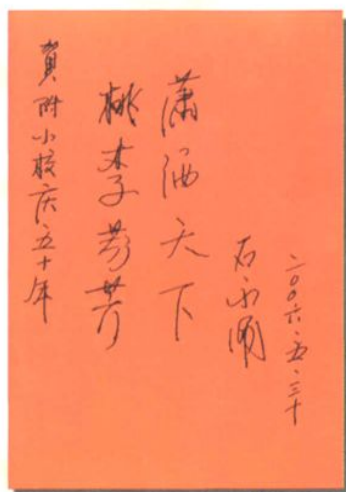 賀附小校庆五十年
桃李芬芳
潇洒天下
石
二〇〇六.五.三十